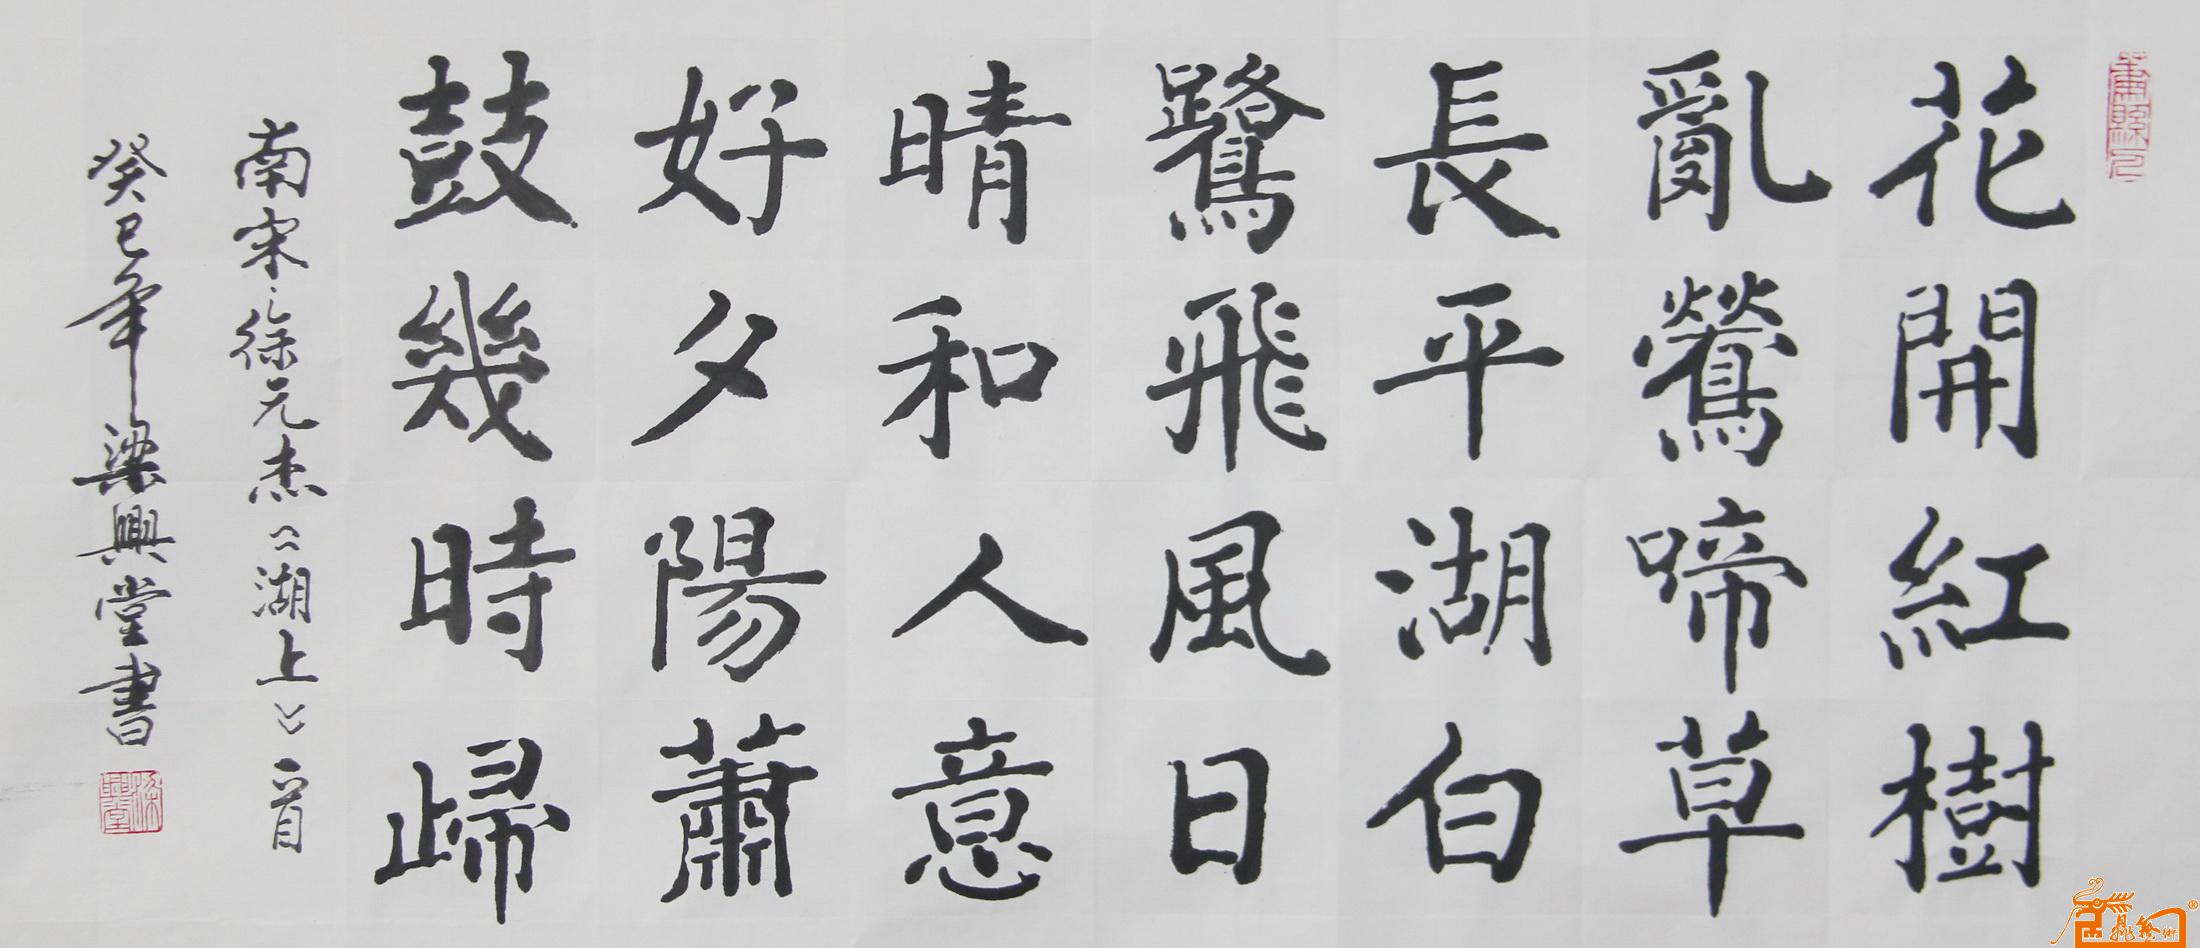 花開紅樹
亂鶯啼草
長平湖白
鷺飛風日
晴和人意
好夕陽蕭
鼓幾時歸
南宋·徐元杰《湖上》一首
癸巳年梁興堂書